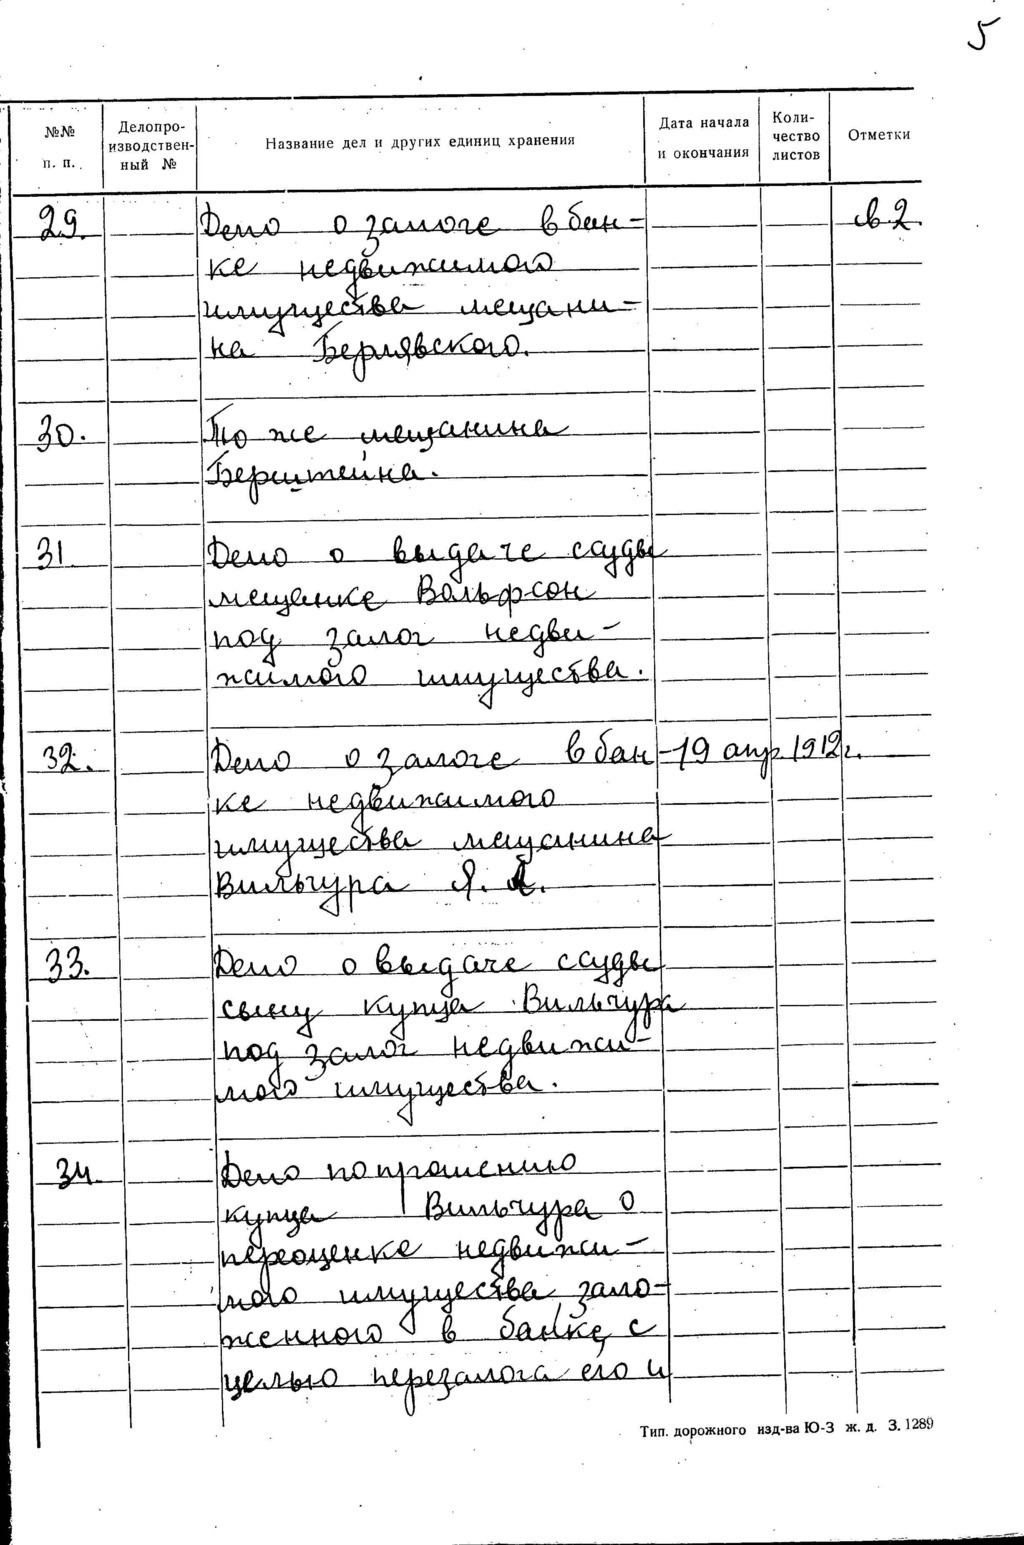 5
№№ п. п. Делопро-изводствен-ный № Название дел и других единиц хранения Дата начала и окончания Коли-чество листов Отметки
29. Дело о залоге в бан- св 2.
ке недвижимого
имущества мещани-
на Берлявского.
30. То же мещанина
Берштейна.
31. Дело о выдаче ссуды
мещанке Вольфсон
под залог недви-
жимого имущества.
32. Дело о залоге в бан- 19 апр. 1912 г.
ке недвижимого
имущества мещанина
Вильчура Я.
33. Дело о выдаче ссуды
сыну купца Вильчура
под залог недвижи-
мого имущества.
34. Дело по прошению
купца Вильчура о
переоценке недвижи-
мого имущества, зало-
женного в банке, с
целью перезалога его и
Тип. дорожного изд-ва Ю-З ж. д. З. 1289